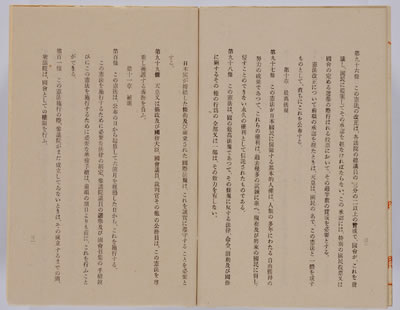 第九十六條　この憲法の改正は、各議院の總議員の三分の二以上の賛成で、國會が、これを發
議し、國民に提案してその承認を經なければならない。この承認には、特別の國民投票又は
國會の定める選擧の際行はれる投票において、その過半數の賛成を必要とする。
憲法改正について前項の承認を經たときは、天皇は、國民の名で、この憲法と一體を成す
ものとして、直ちにこれを公布する。
第十章　最高法規
第九十七條　この憲法が日本國民に保障する基本的人權は、人類の多年にわたる自由獲得の
努力の成果であつて、これらの權利は、過去幾多の試錬に堪へ、現在及び將來の國民に對し、
侵すことのできない永久の權利として信託されたものである。
第九十八條　この憲法は、國の最高法規であつて、その條規に反する法律、命令、詔勅及び國務
に關するその他の行爲の全部又は一部は、その效力を有しない。
日本國が締結した條約及び確立された國際法規は、これを誠實に遵守することを必要と
する。
第九十九條　天皇又は攝政及び國務大臣、國會議員、裁判官その他の公務員は、この憲法を尊
重し擁護する義務を負ふ。
第十一章　補則
第百條　この憲法は、公布の日から起算して六箇月を經過した日から、これを施行する。
この憲法を施行するために必要な法律の制定、參議院議員の選擧及び國會召集の手續竝
びにこの憲法を施行するために必要な準備手續は、前項の期日よりも前に、これを行ふこと
ができる。
第百一條　この憲法施行の際、參議院がまだ成立してゐないときは、その成立するまでの間、
衆議院は、國會としての權限を行ふ。